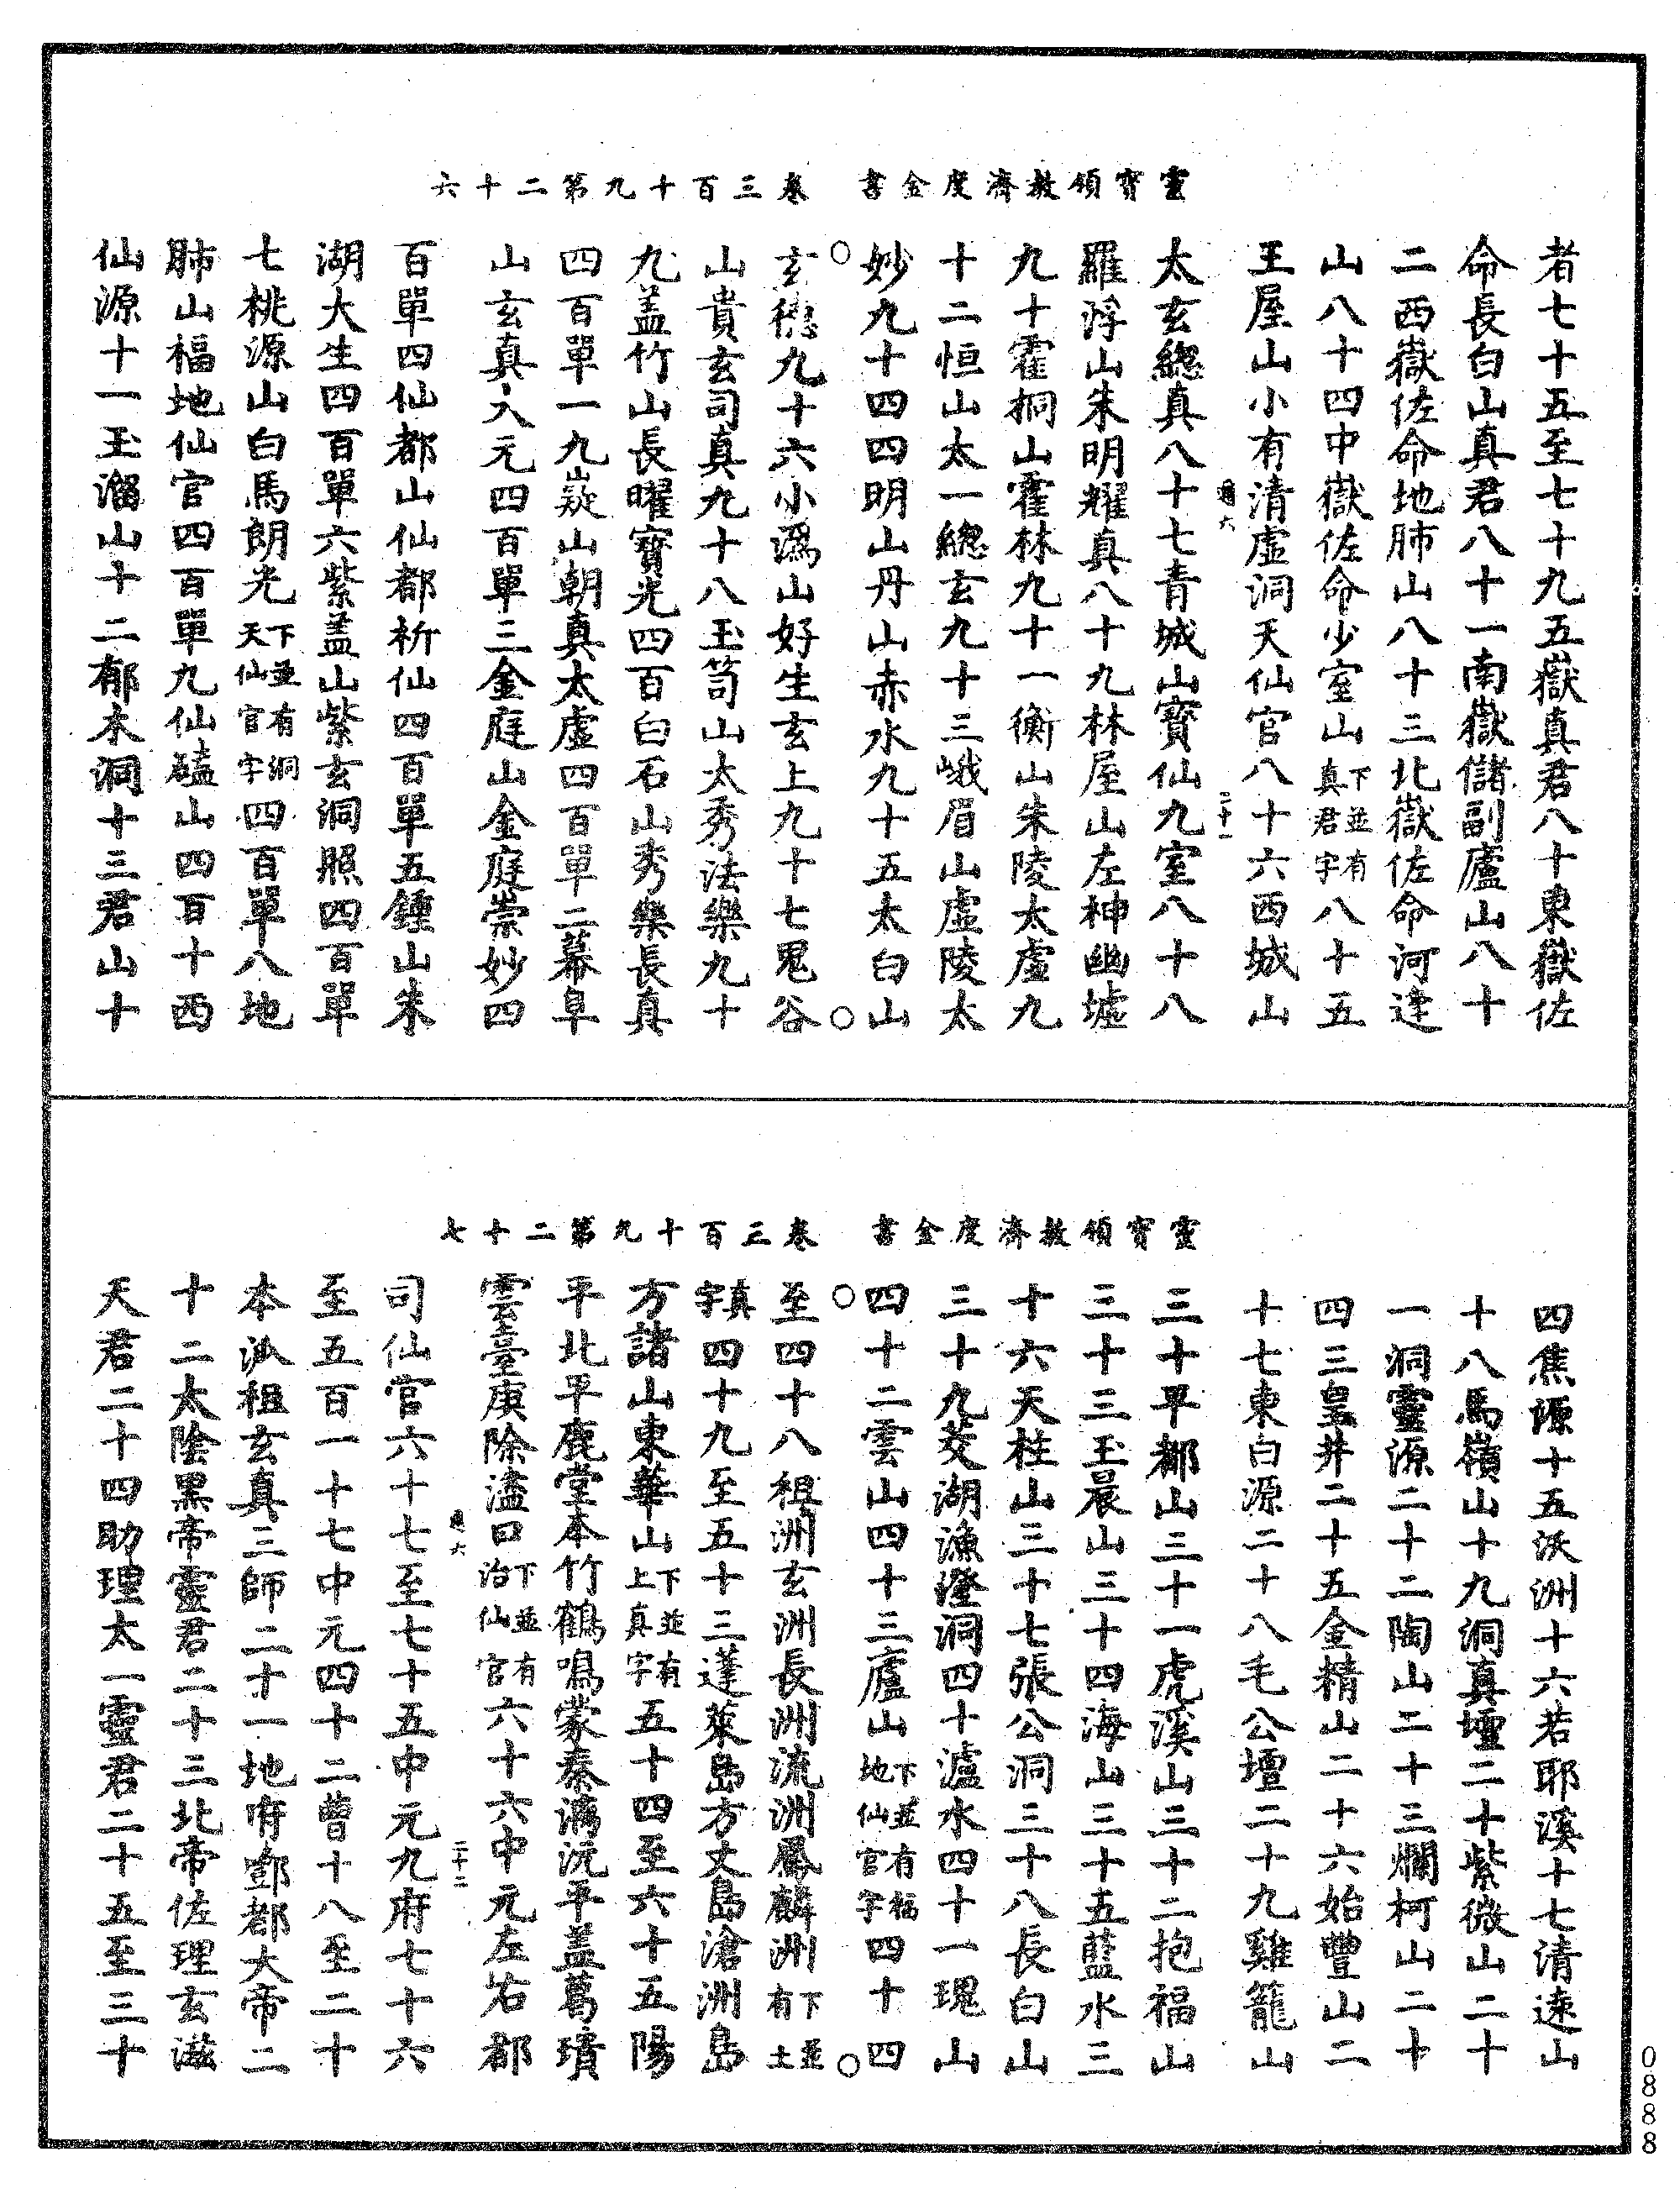 靈寶領教濟度金書　卷三百十九第二十六
者七十五至七十九五嶽真君八十東嶽佐
命長白山真君八十一南嶽儲副廬山八十
二西嶽佐命地肺山八十三北嶽佐命河逢
山八十四中嶽佐命少室山下並有真君字八十五
王屋山小有清虛洞天仙官八十六西城山
太玄緫真八十七青城山寶仙九室八十八
羅浮山朱明耀真八十九林屋山左神幽墟
九十霍桐山霍林九十一衡山朱陵太虛九
十二恒山太一緫玄九十三峨眉山虛陵太
妙九十四四明山丹山赤水九十五太白山
玄德九十六小溈山好生玄上九十七鬼谷
山貴玄司真九十八玉笥山太秀法樂九十
九蓋竹山長曜寶光四百白石山秀樂長真
四百單一九嶷山朝真太虛四百單二幕阜
山玄真入元四百單三金庭山金庭崇妙四
百單四仙都山仙都祈仙四百單五鍾山朱
湖大生四百單六紫蓋山紫玄洞照四百單
七桃源山白馬朗光下並有洞天仙官字四百單八地
肺山福地仙官四百單九仙磕山四百十西
仙源十一玉溜山十二郁木洞十三君山十
靈寶領教濟度金書　卷三百十九第二十七
四焦源十五沃洲十六若耶溪十七清遠山
十八馬嶺山十九洞真壇二十紫微山二十
一洞靈源二十二陶山二十三爛柯山二十
四三皇井二十五金精山二十六始豐山二
十七東白源二十八毛公壇二十九雞籠山
三十平都山三十一虎溪山三十二抱福山
三十三玉晨山三十四海山三十五藍水三
十六天柱山三十七張公洞三十八長白山
三十九茭湖漁澄洞四十瀘水四十一瑰山
四十二雲山四十三廬山下並有福地仙官字四十四
至四十八祖洲玄洲長洲流洲鳳麟洲下並有土
真字四十九至五十三蓬萊島方丈島滄洲島
方諸山東華山下並有上真字五十四至六十五陽
平北平鹿堂本竹鶴鳴蒙秦漓沅平蓋葛璝
雲臺庚除湓口下並有治仙官六十六中元左右都
司仙官六十七至七十五中元九府七十六
至五百一十七中元四十二曹十八至二十
本派祖玄真三師二十一地府酆都大帝二
十二太陰黑帝靈君二十三北帝佐理玄滋
天君二十四助理太一靈君二十五至三十
0888